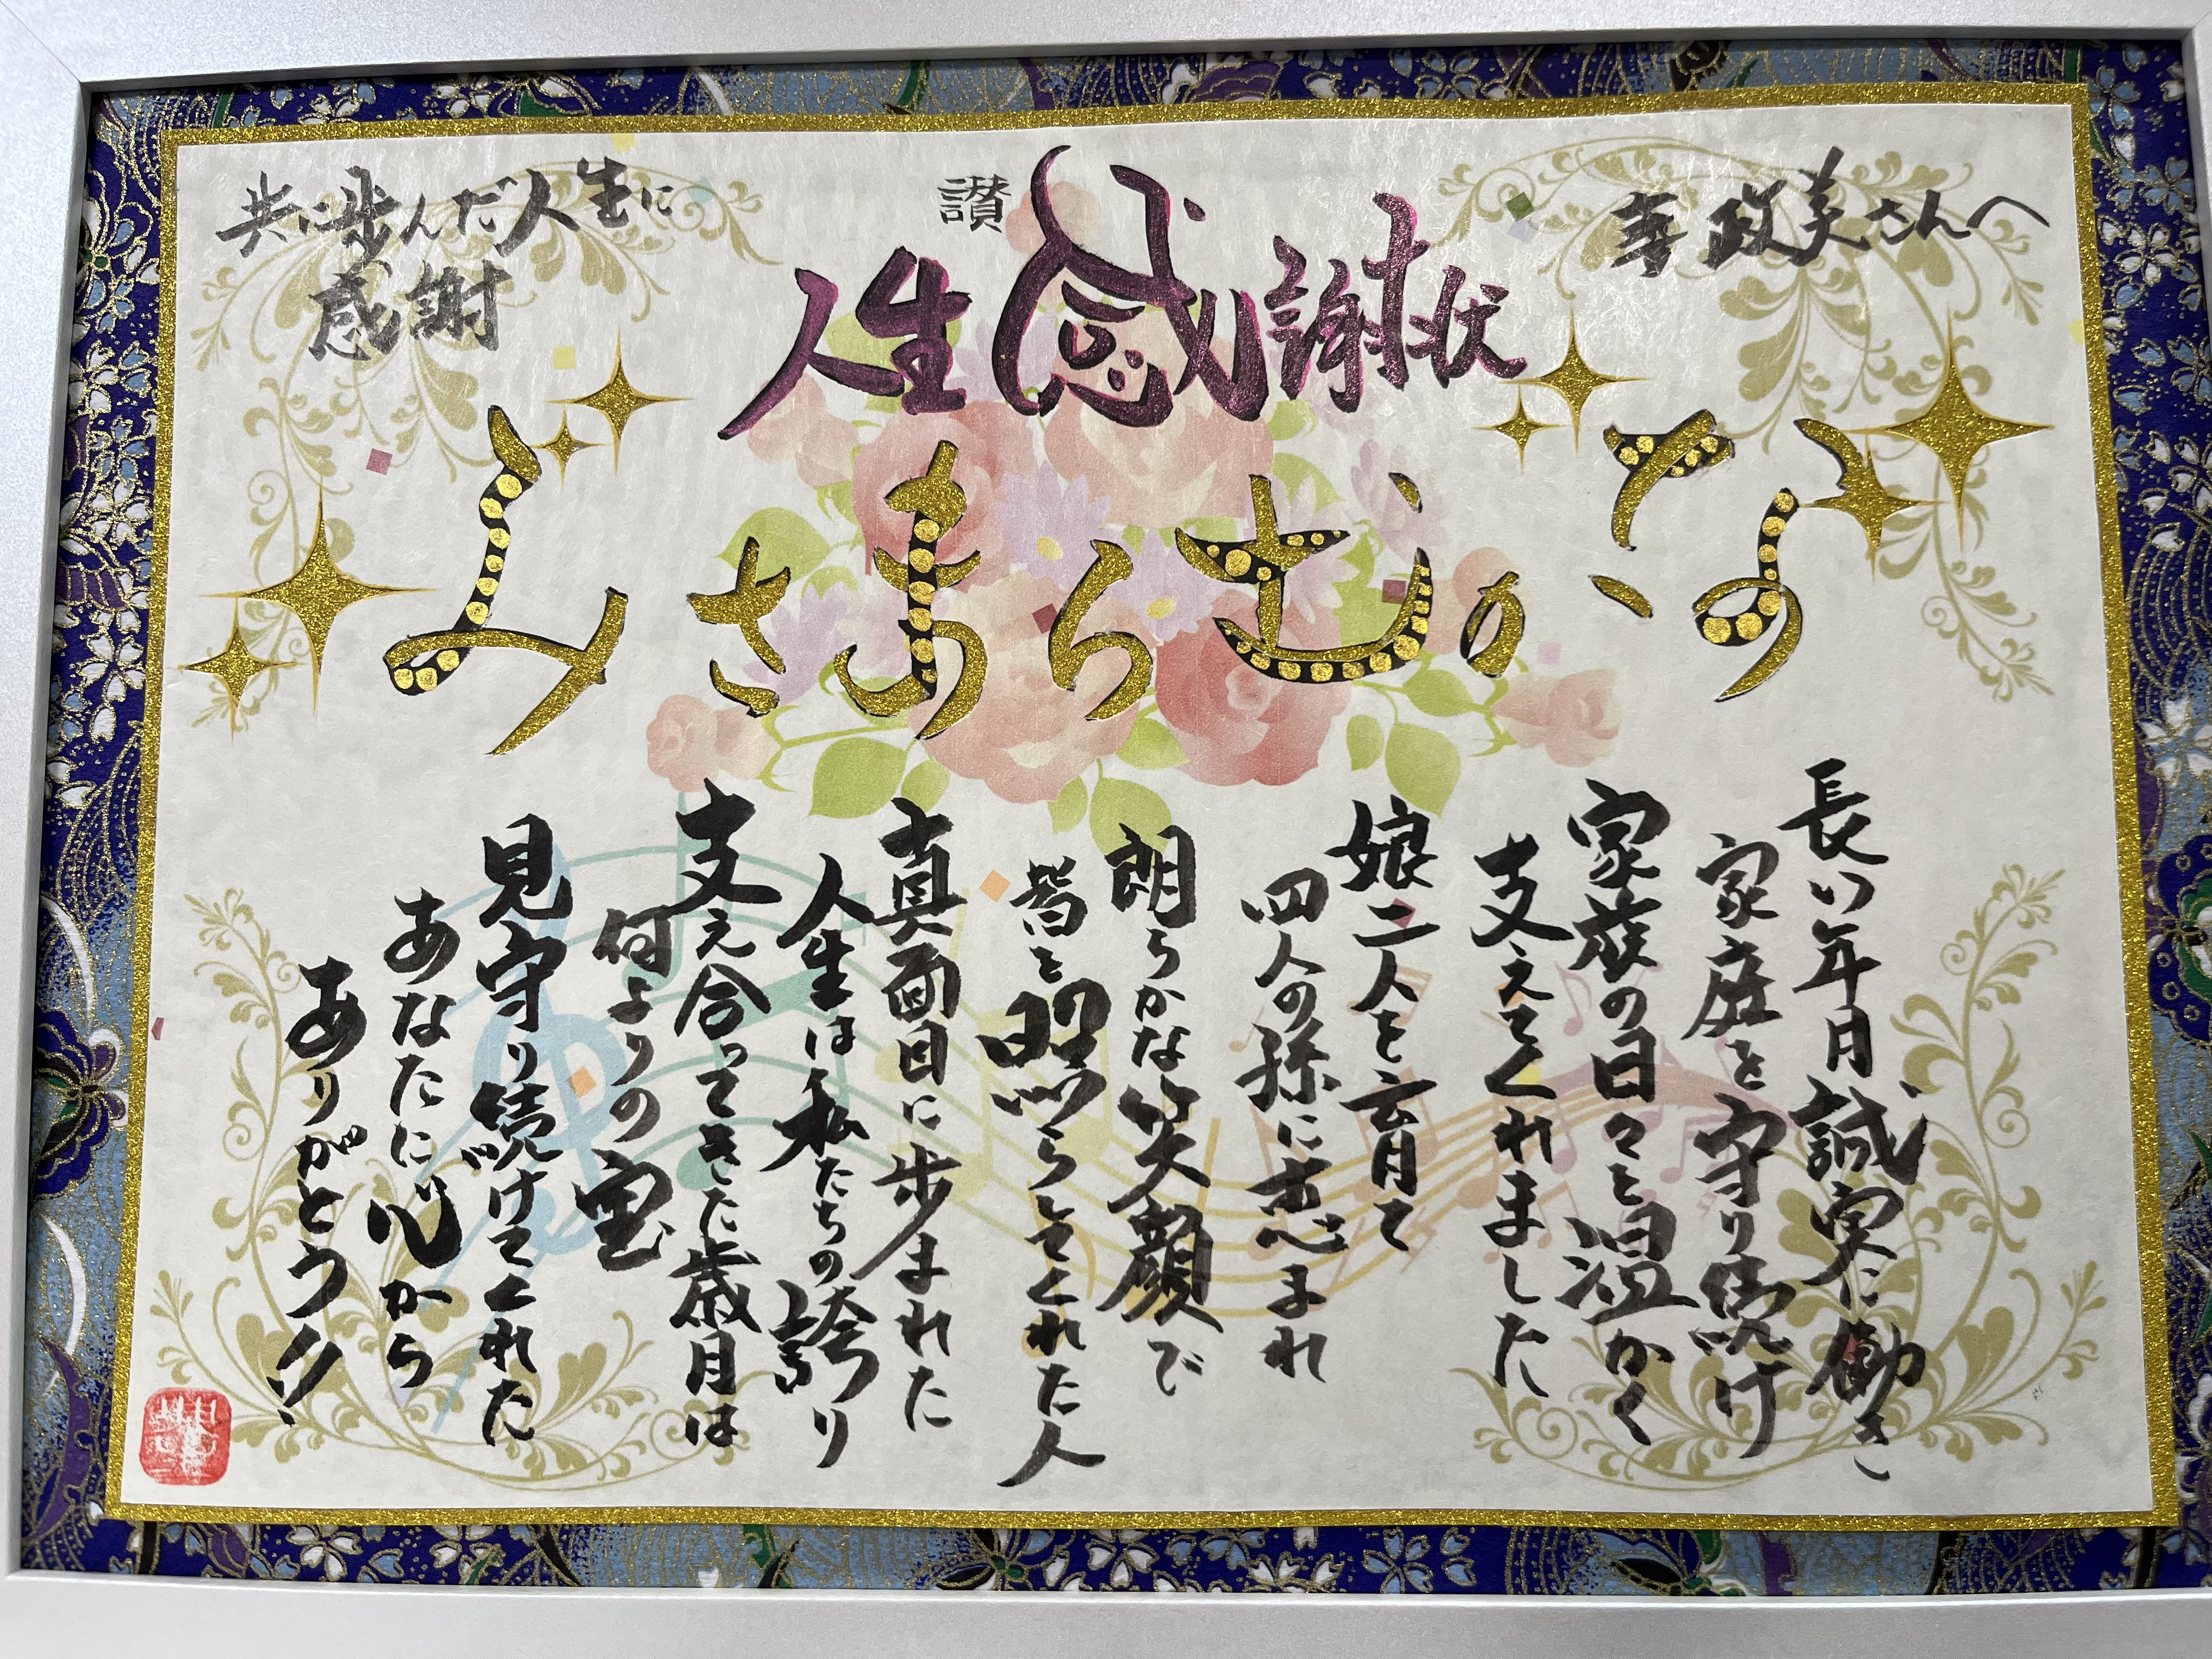 妻 政美さんへ
讃
人生感謝状
共に歩んだ人生に
感謝
なかむらまさみ
長い年月誠実に働き
家庭を守り続け
家族の日々を温かく
支えてくれました
娘二人を育て
四人の孫に恵まれ
朗らかな笑顔で
皆を照らしてくれた人
真面目に歩まれた
人生は私たちの誇り
支え合ってきた歳月は
何よりの宝
見守り続けてくれた
あなたに心から
ありがとう!!